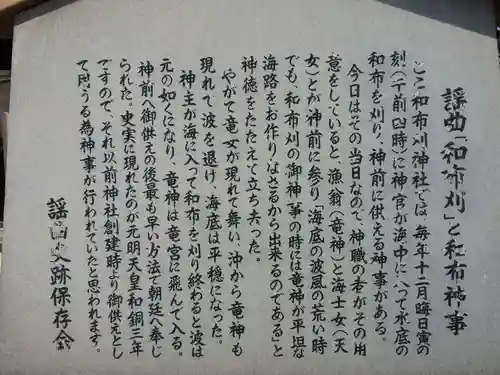 謡曲「和布刈」と和布神事
ここ和布刈神社では、毎年十二月晦日寅の
刻(午前四時)に神官が海中に入って水底の
和布を刈り、神前に供える神事がある。
今日はその当日なので、神職の者がその用
意をしていると、漁翁(竜神)と海士女(天
女)とが神前に参り「海底の波風の荒い時
でも、和布刈の御神事の時には竜神が平坦な
海路をお作りなさるから出来るのである」と
神徳をたたえて立ち去った。
やがて竜女が現れて舞い、沖から竜神も
現れて波を退け、海底は平穏になった。
神主が海に入って和布を刈り終わると波は
元の如くになり、竜神は竜宮に飛んで入る。
神前へ御供えの後最も早い方法で朝廷へ奉じ
られた。史実に現れたのが元明天皇和銅三年
ですので、それ以前神社創建時より御供えとし
て同うる為神事が行われていたと思われます。
謡曲史跡保存会